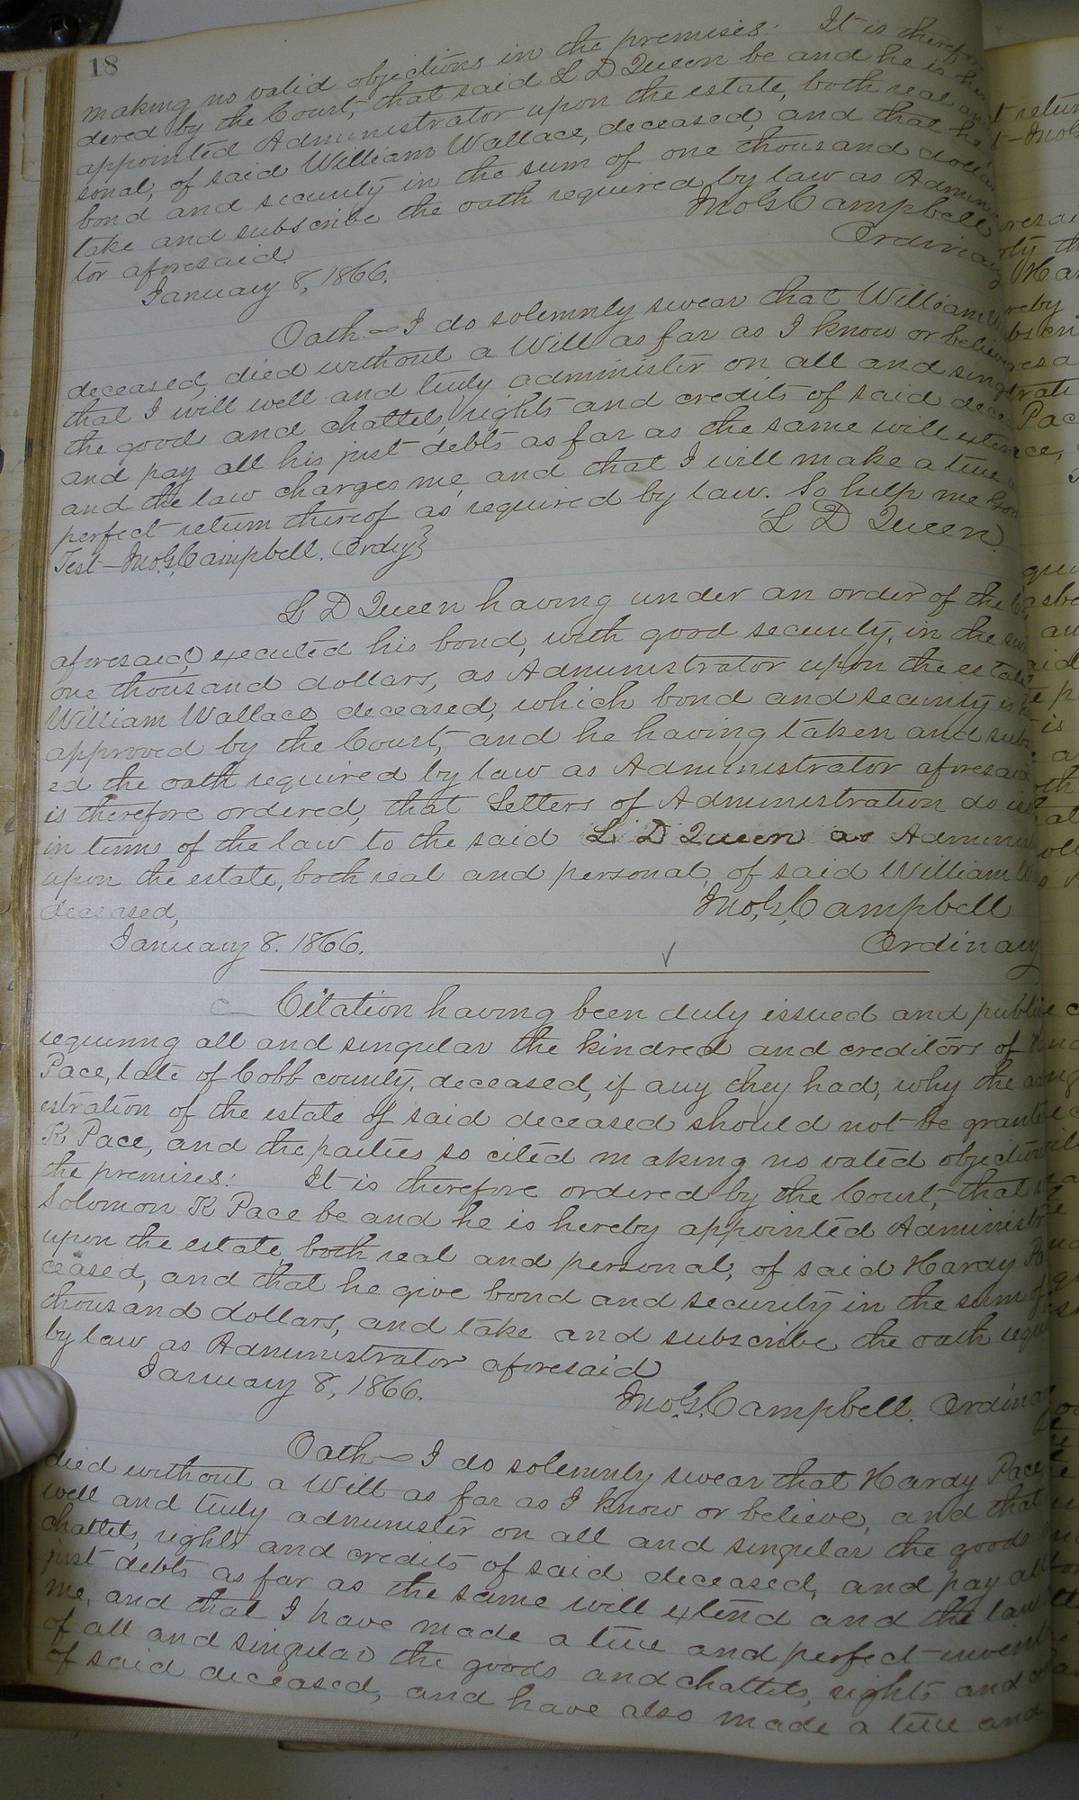 18
making no valid objections in the premises: It is therefore
dered by the Court, that said L D Queen be and he is
appointed Administrator upon the estate, both real and
sonal, of said William Wallace, deceased, and that he
bond and security in the sum of one thousand dollars
take and subscribe the oath required by law as Admin
tor aforesaid Jno. G. Campbell
January 8, 1866. Ordinary
Oath — I do solemnly swear that William
deceased, died without a Will as far as I know or believe
that I will well and truly administer on all and sing
the goods and chattels, rights and credits of said dece
and pay all his just debts as far as the same will exten
and the law charges me, and that I will make a true
perfect return thereof as required by law. So help me God
L D Queen
Test — Jno. G. Campbell. Ordy}
L D Queen having under an order of the
aforesaid, executed his bond, with good security, in the sum
one thousand dollars, as Administrator upon the estate
William Wallace, deceased, which bond and security is
approved by the Court, and he having taken and subs
ed the oath required by law as Administrator aforesaid
is therefore ordered, that Letters of Administration do
in terms of the law to the said L D Queen as Adminis
upon the estate, both real and personal, of said William
deceased, Jno. G. Campbell
January 8. 1866. Ordinary
Citation having been duly issued and publi
requiring all and singular the kindred and creditors of
Pace, late of Cobb county, deceased, if any they had, why the
istration of the estate of said deceased should not be grant
K Pace, and the parties so cited making no valed objection
the premises: It is therefore ordered by the Court, that
Solomon K Pace be and he is hereby appointed Administr
upon the estate both real and personal, of said Hardy
ceased, and that he give bond and security in the sum of
thousand dollars, and take and subscribe the oath requi
by law as Administrator aforesaid
January 8, 1866. Jno. G. Campbell. Ordina
Oath — I do solemnly swear that Hardy Pace
died without a Will as far as I know or believe, and that
well and truly administer on all and singular the goods
chattels, rights and credits of said deceased, and pay all
just debts as far as the same will extend and the law
me, and that I have made a true and perfect invent
of all and singular the goods and chattels, rights and
of said deceased, and have also made a true and